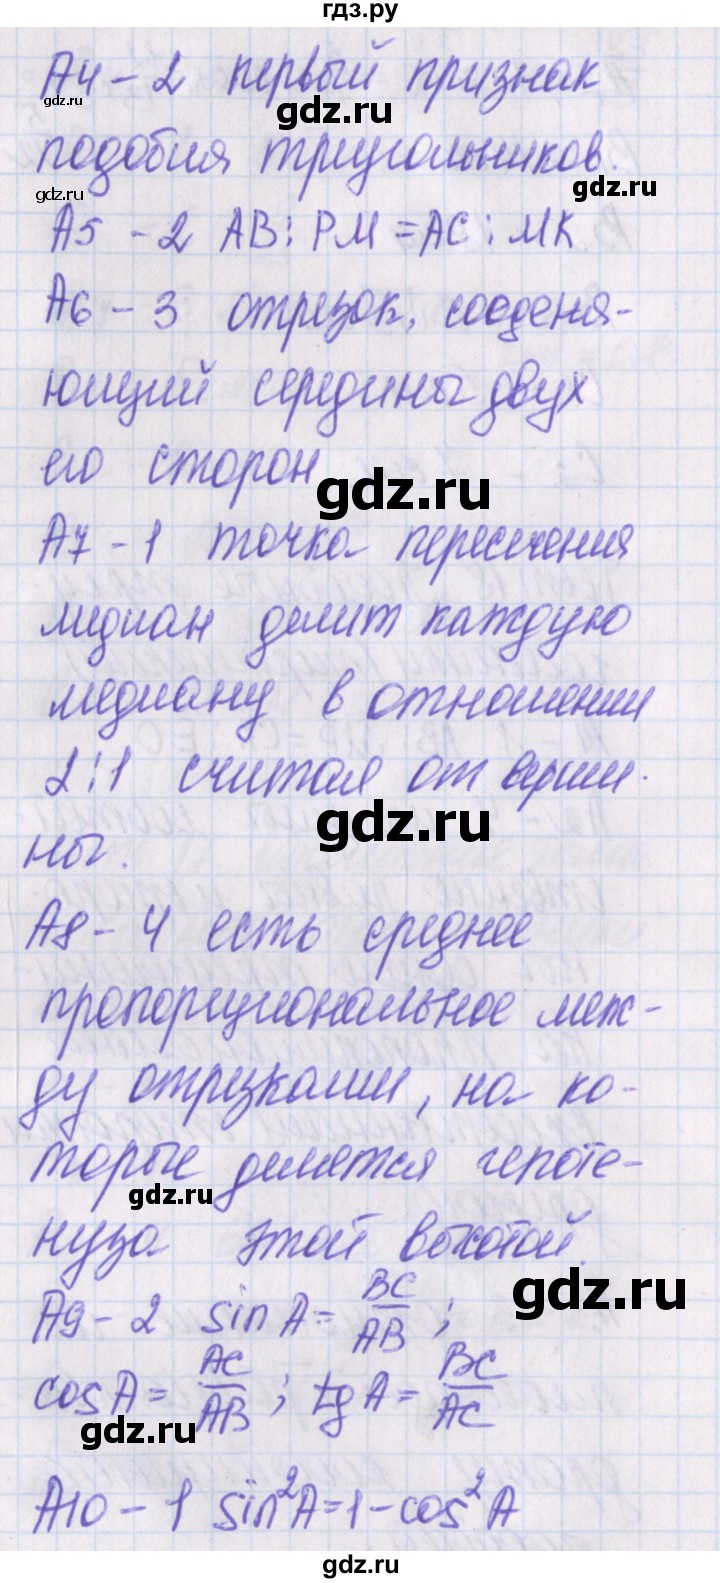 гдз.ру
А4 - 2 первый признак
gdz.ru
gdz.ru
подобия треугольников.
gdz.ru
gdz.ru
А5 - 2 AB : PM = AC : MK
А6 - 3 отрезок, соеденя-
ющий середины двух
его сторон
gdz.ru
А7 - 1 точка пересечения
медиан делит каждую
медиану в отношении
2:1 считая от верши-
gdz.ru
ны.
А8 - 4 есть среднее
пропорциональное меж-
ду отрезками, на ко-
торые делется гепоте-
gdz.ru
нуза этой высотой.
gdz.ru
А9 - 2 sin A = BC/AB ;
cos A = AC/AB ; tg A = BC/AC
gdz.ru
А10 - 1 sin²A = 1 - cos²A
gdz.ru